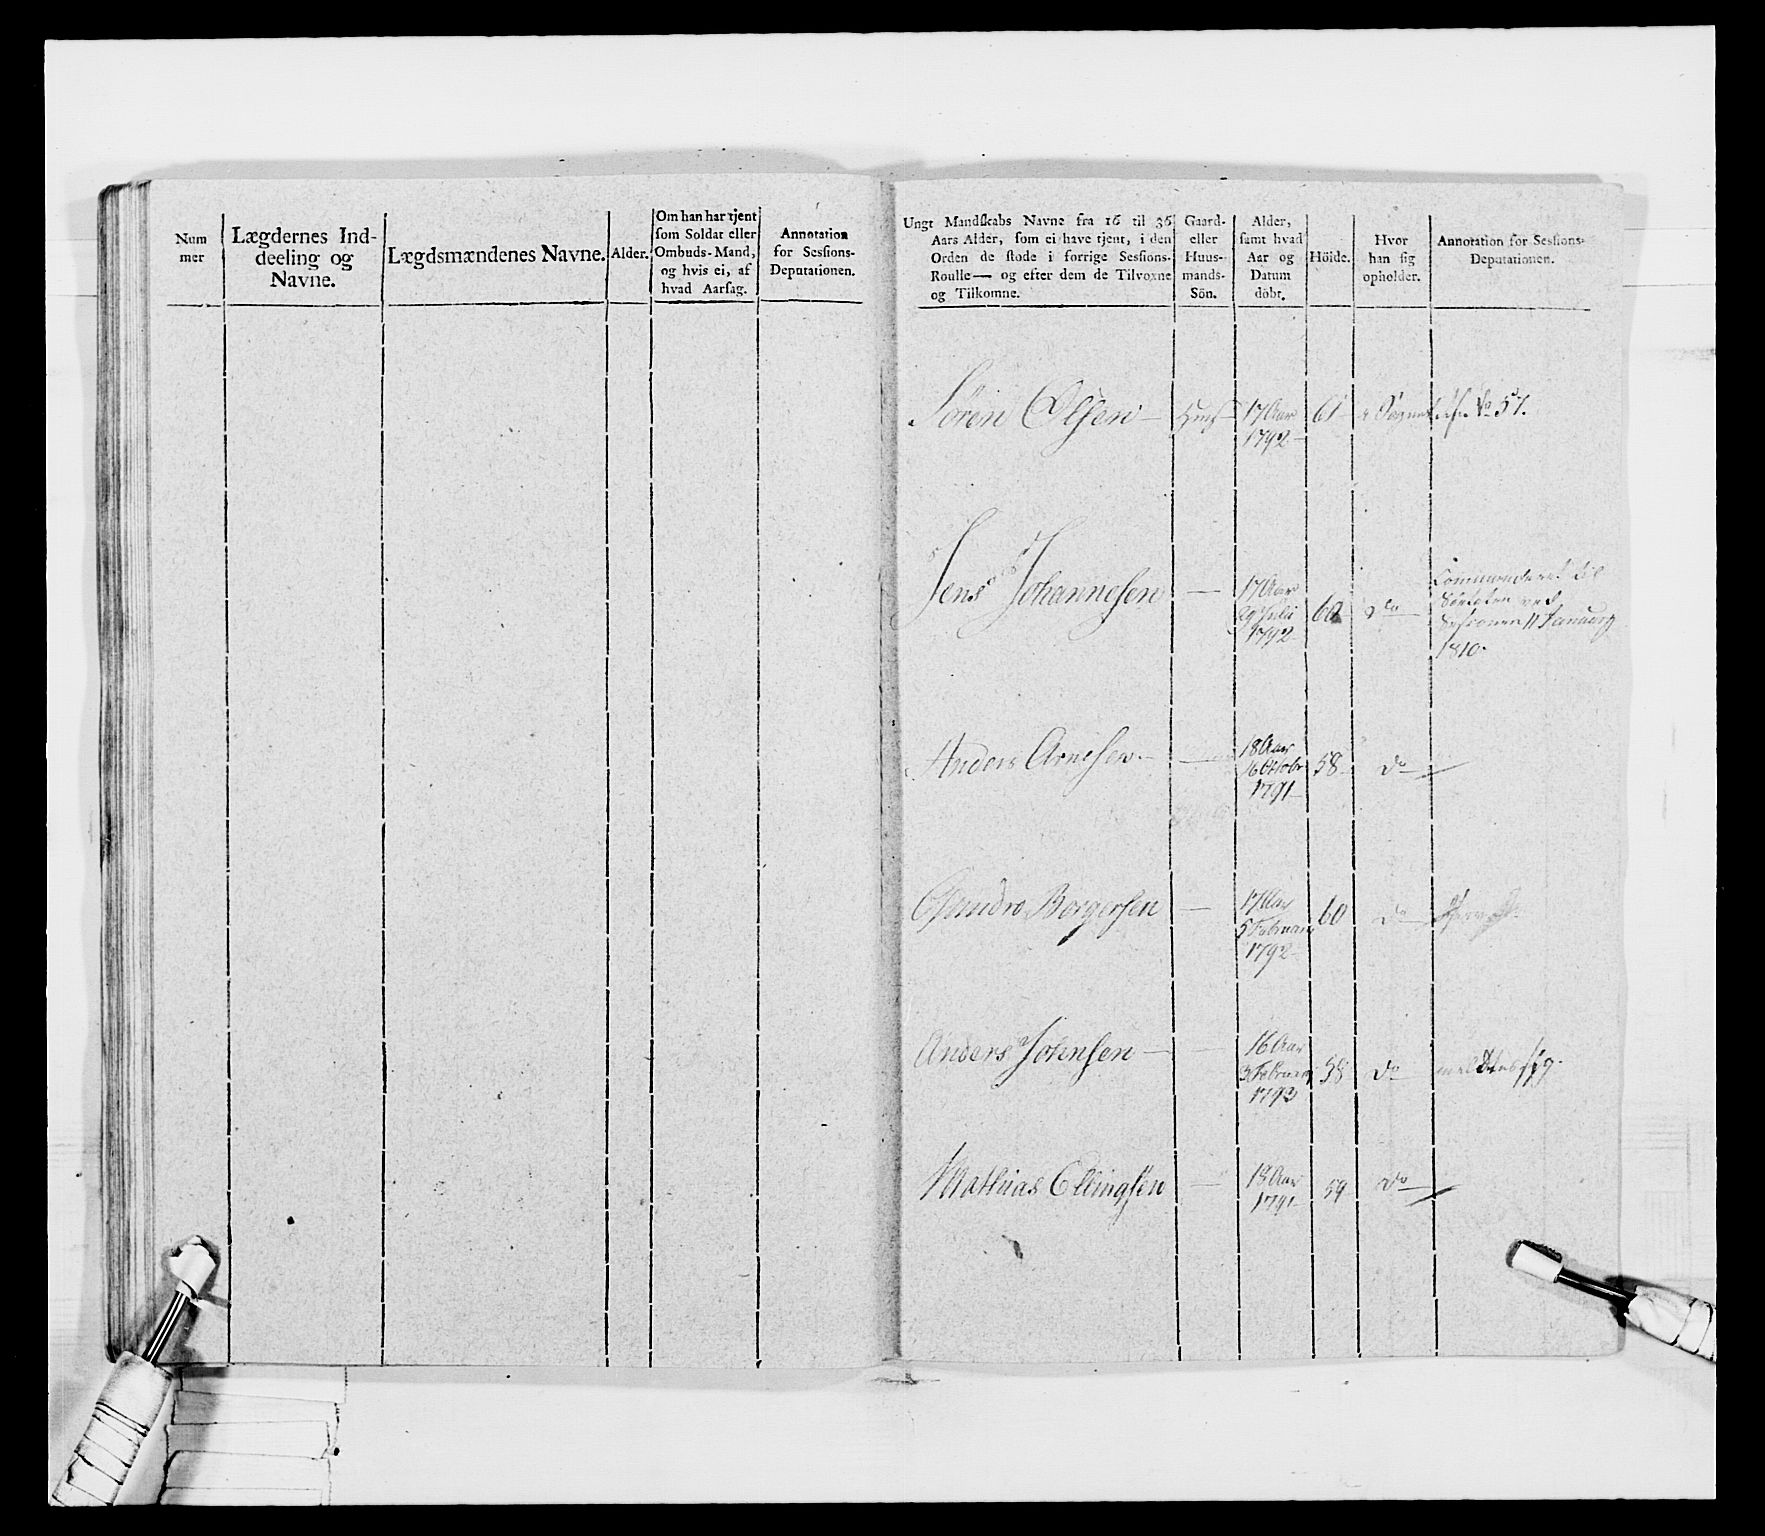 Num
mer
Lægdernes Ind-
deeling og
Navne.
Lægdsmændenes Navne.
Alder.
Om han har tjent
som Soldat eller
Ombuds-Mand,
og hvis ei, af
hvad Aarsag.
Annotation
for Sessions-
Deputationen.
Ungt Mandskabs Navne fra 16 til 36
Aars Alder, som ei have tjent, i den
Orden de stode i forrige Sessions-
Roulle — og efter dem de Tilvoxne
og Tilkomne.
Gaard-
eller
Huus-
mands-
Søn.
Alder,
samt hvad
Aar og
Datum
døbt.
Höide.
Hvor
han sig
opholder.
Annotation for Sessions-
Deputationen.
Sören Olsen — 17 Aar 61 No 57.
1792 —
Jens Johannesen — 17 Aar
29 Julii
1792 60 Do — Commanderet til
Söetaten ved
Sessionen 11 Januarj
1810.
Anders Arnesen — 18 Aar
16 Octobr
1791 — 58 — Do —
Borgersen — 17 Aar
5 Februarj
1792 — 60 Do —
Anders Johnsen — 16 Aar
3 Februarj
1793 58 Do — meldtes sig.
Mathias Ellingsen — 18 Aar
1791 — 59 Do —